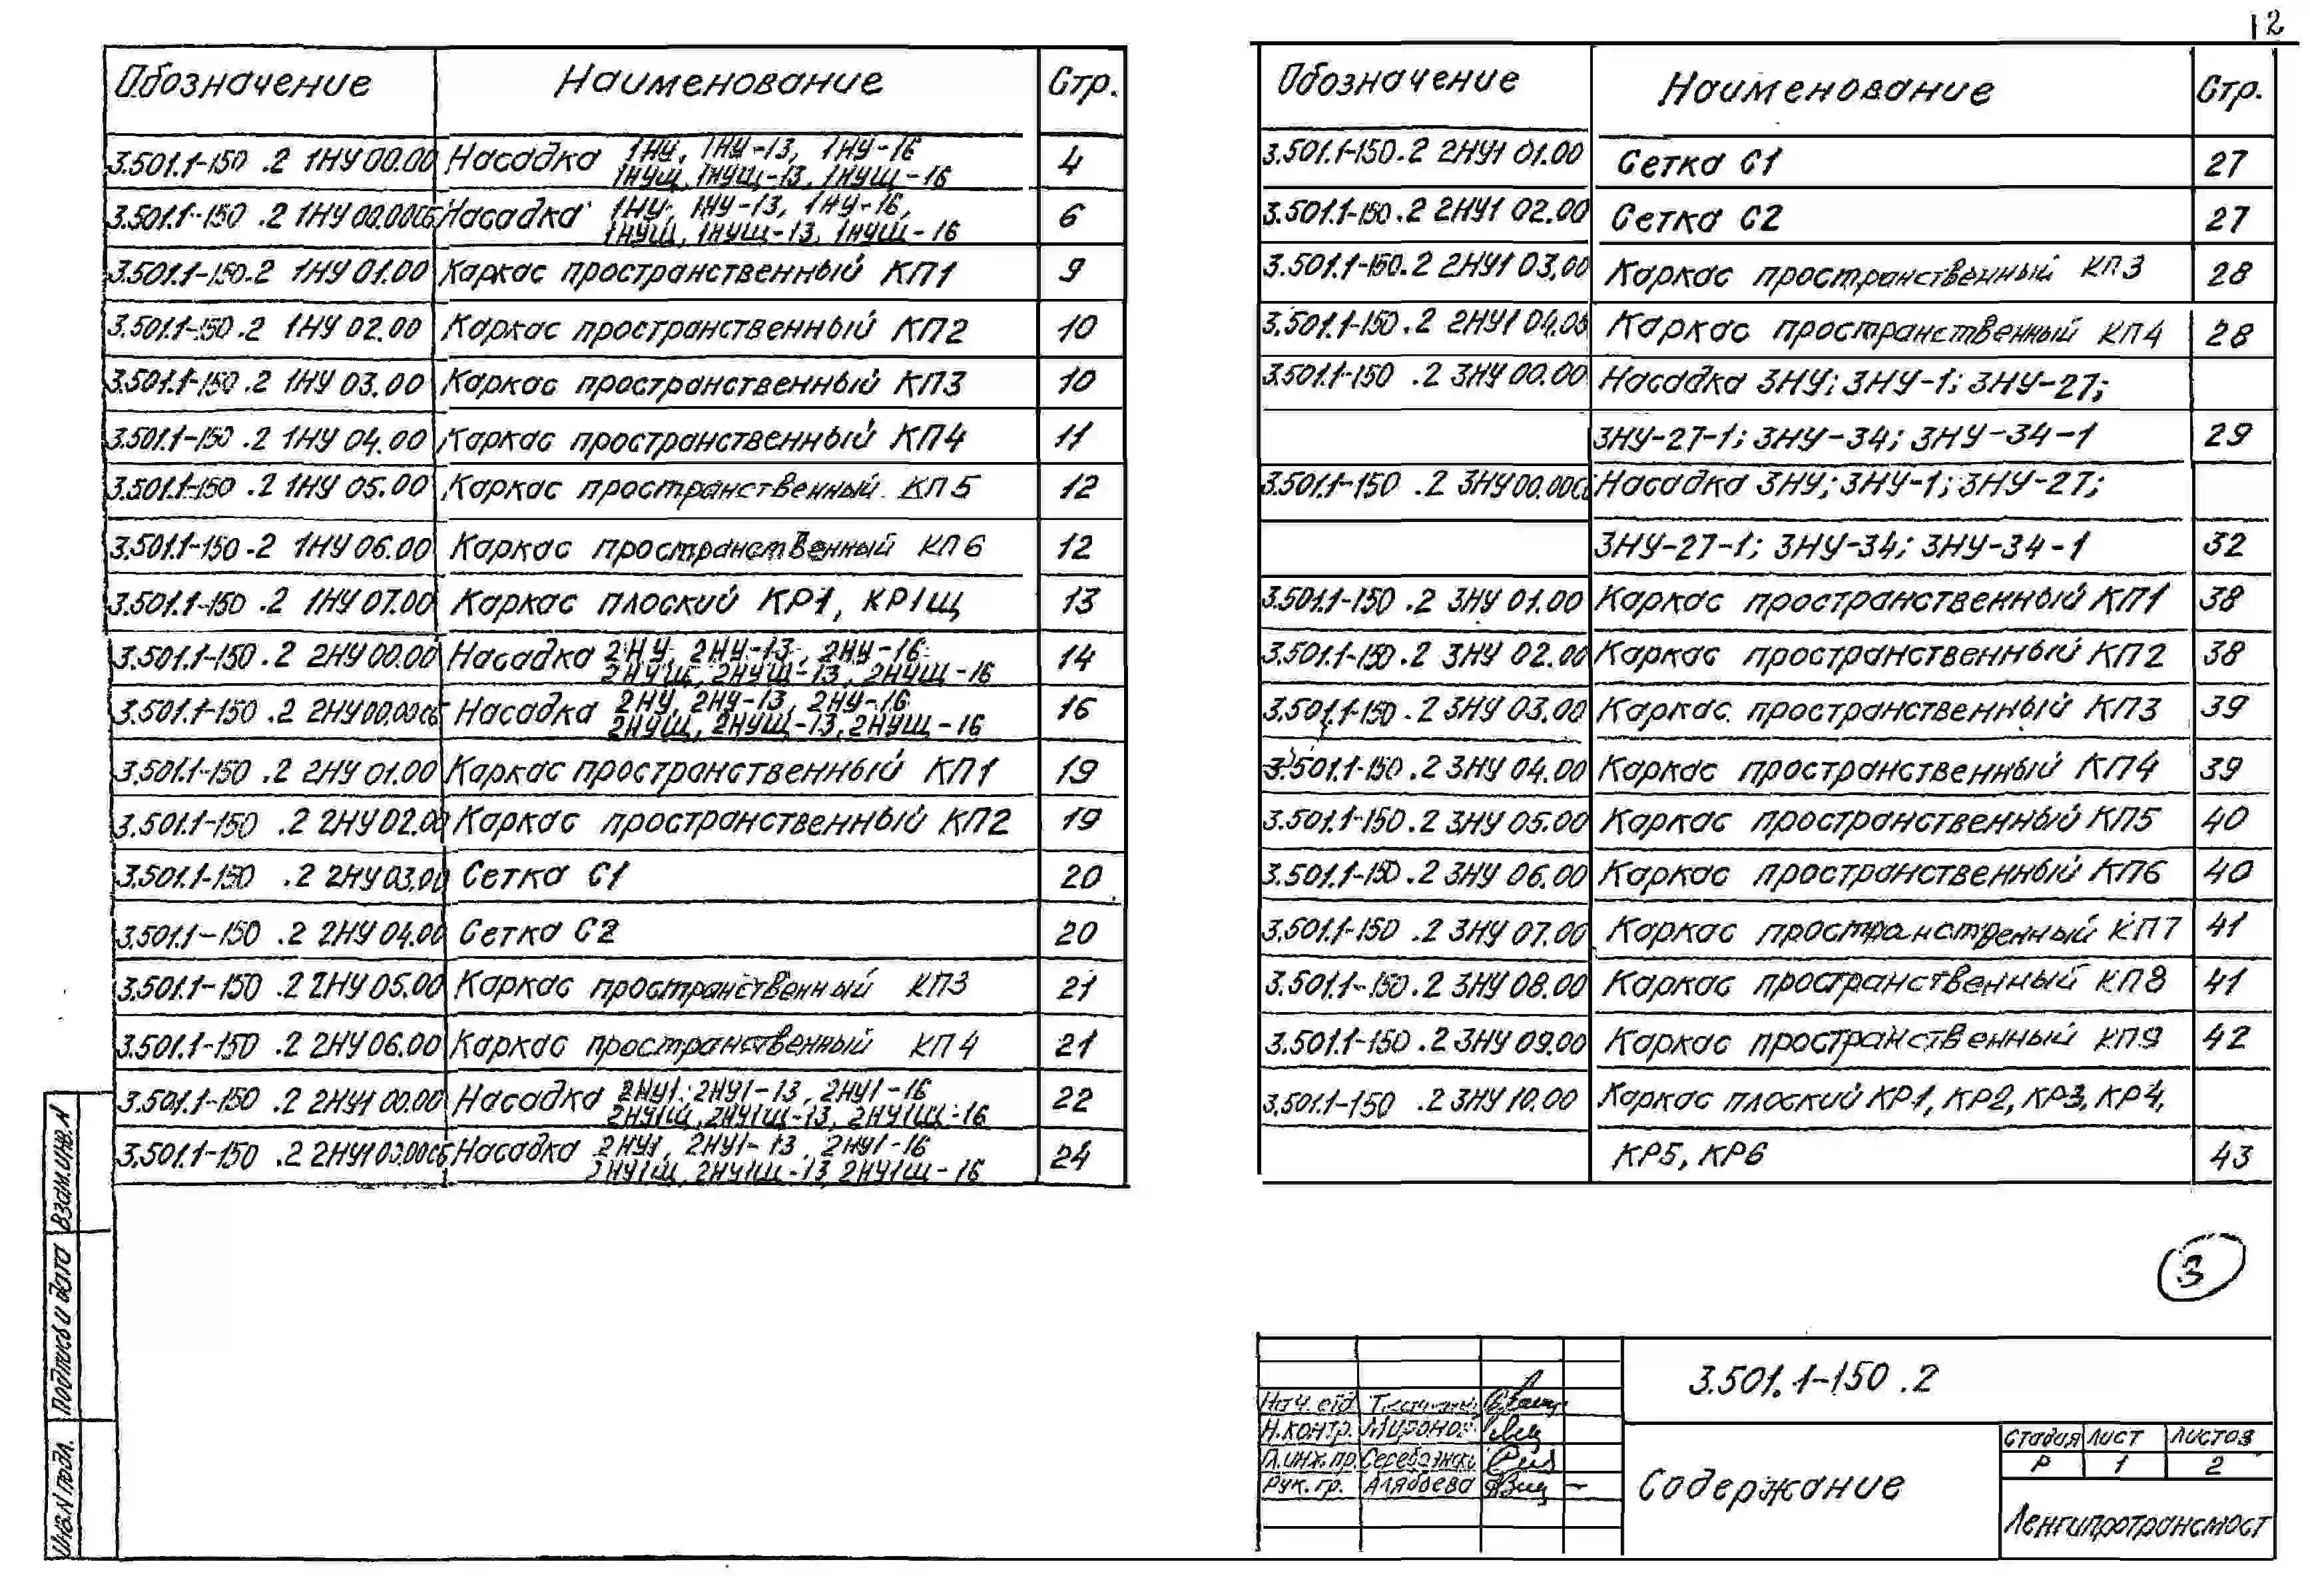 12
Обозначение Наименование Стр.
3.501.1-150 .2 1НУ 00.00 Насадка 1НУ, 1НУ-13, 1НУ-16
1НУЩ, 1НУЩ-13, 1НУЩ-16 4
3.501.1-150 .2 1НУ 00.00СБ Насадка 1НУ, 1НУ-13, 1НУ-16,
1НУЩ, 1НУЩ-13, 1НУЩ-16 6
3.501.1-150.2 1НУ 01.00 Каркас пространственный КП1 9
3.501.1-150.2 1НУ 02.00 Каркас пространственный КП2 10
3.501.1-150.2 1НУ 03.00 Каркас пространственный КП3 10
3.501.1-150 .2 1НУ 04.00 Каркас пространственный КП4 11
3.501.1-150 .2 1НУ 05.00 Каркас пространственный КП5 12
3.501.1-150.2 1НУ 06.00 Каркас пространственный КП6 12
3.501.1-150 .2 1НУ 07.00 Каркас плоский КР1, КР1Щ 13
3.501.1-150.2 2НУ 00.00 Насадка 2НУ, 2НУ-13, 2НУ-16
2НУЩ, 2НУЩ-13, 2НУЩ-16 14
3.501.1-150 .2 2НУ 00.00СБ Насадка 2НУ, 2НУ-13, 2НУ-16
2НУЩ, 2НУЩ-13, 2НУЩ-16 16
3.501.1-150 .2 2НУ 01.00 Каркас пространственный КП1 19
3.501.1-150 .2 2НУ 02.00 Каркас пространственный КП2 19
3.501.1-150 .2 2НУ 03.00 Сетка С1 20
3.501.1-150 .2 2НУ 04.00 Сетка С2 20
3.501.1-150 .2 2НУ 05.00 Каркас пространственный КП3 21
3.501.1-150 .2 2НУ 06.00 Каркас пространственный КП4 21
3.501.1-150 .2 2НУ1 00.00 Насадка 2НУ1, 2НУ1-13, 2НУ1-16
2НУ1Щ, 2НУ1Щ-13, 2НУ1Щ-16 22
3.501.1-150 .2 2НУ1 00.00СБ Насадка 2НУ1, 2НУ1-13, 2НУ1-16
2НУ1Щ, 2НУ1Щ-13, 2НУ1Щ-16 24
Обозначение Наименование Стр.
3.501.1-150.2 2НУ1 01.00 Сетка С1 27
3.501.1-150.2 2НУ1 02.00 Сетка С2 27
3.501.1-150.2 2НУ1 03.00 Каркас пространственный КП3 28
3.501.1-150.2 2НУ1 04.00 Каркас пространственный КП4 28
3.501.1-150 .2 3НУ 00.00 Насадка 3НУ; 3НУ-1; 3НУ-27;
3НУ-27-1; 3НУ-34; 3НУ-34-1 29
3.501.1-150 .2 3НУ 00.00СБ Насадка 3НУ; 3НУ-1; 3НУ-27;
3НУ-27-1; 3НУ-34; 3НУ-34-1 32
3.501.1-150 .2 3НУ 01.00 Каркас пространственный КП1 38
3.501.1-150.2 3НУ 02.00 Каркас пространственный КП2 38
3.501.1-150.2 3НУ 03.00 Каркас пространственный КП3 39
3.501.1-150.2 3НУ 04.00 Каркас пространственный КП4 39
3.501.1-150.2 3НУ 05.00 Каркас пространственный КП5 40
3.501.1-150.2 3НУ 06.00 Каркас пространственный КП6 40
3.501.1-150 .2 3НУ 07.00 Каркас пространственный КП7 41
3.501.1-150.2 3НУ 08.00 Каркас пространственный КП8 41
3.501.1-150.2 3НУ 09.00 Каркас пространственный КП9 42
3.501.1-150 .2 3НУ 10.00 Каркас плоский КР1, КР2, КР3, КР4,
КР5, КР6 43
3
3.501.1-150 .2
Нач. отд.
Н.контр. Миронов
Гл.инж.пр.
Рук. гр. Алябьева
Содержание
Стадия Лист Листов
Р 1 2
Ленгипротрансмост
Взам.инв.N
Подпись и дата
Инв.N подл.